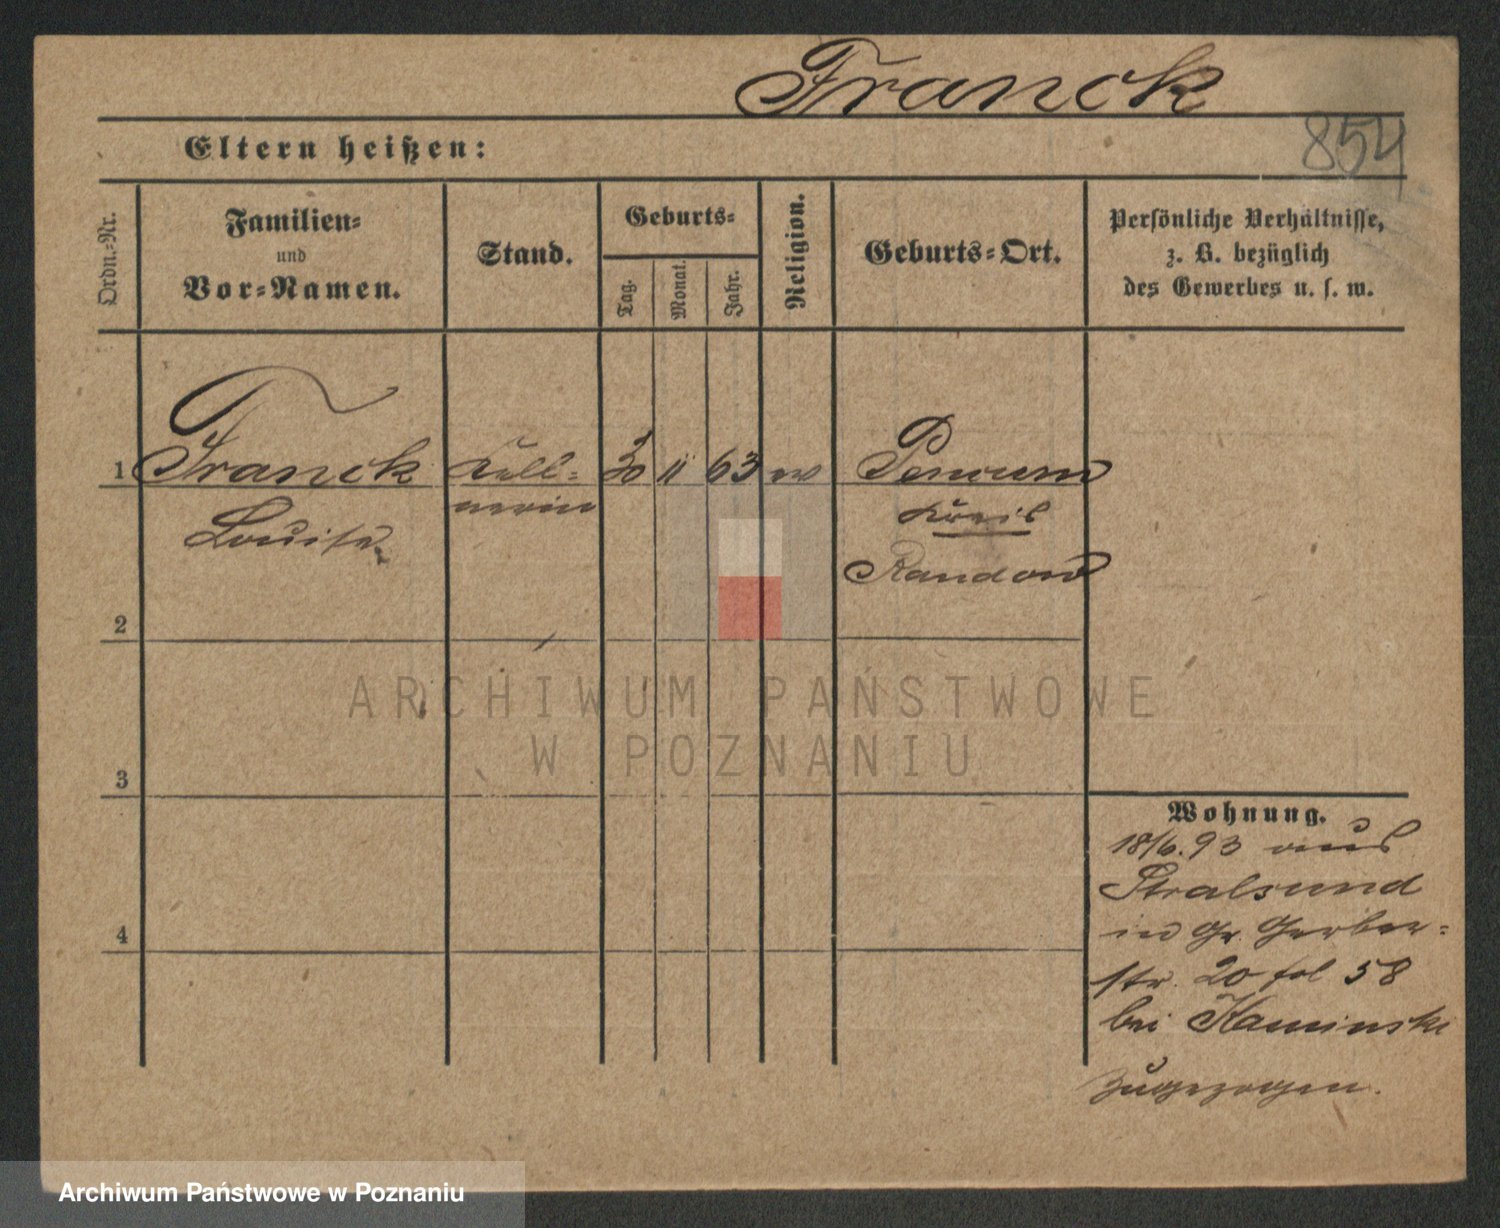 Franck
854
Eltern heißen:
Ordn.-Nr.
Familien-
und
Vor-Namen.
Stand.
Geburts-
Tag.
Monat.
Jahr.
Religion.
Geburts-Ort.
Persönliche Verhältnisse,
z. B. bezüglich
des Gewerbes u. s. w.
1
Franck
Louise
Kell-
nerin
30
11
63
ev
Pencun
Kreis
Randow
2
3
4
ARCHIWUM PAŃSTWOWE
W POZNANIU
Wohnung.
18/6. 93 aus
Stralsund
in Gr. Gerber-
str. 20 fol 58
bei Kaminski
zugezogen.
Archiwum Państwowe w Poznaniu